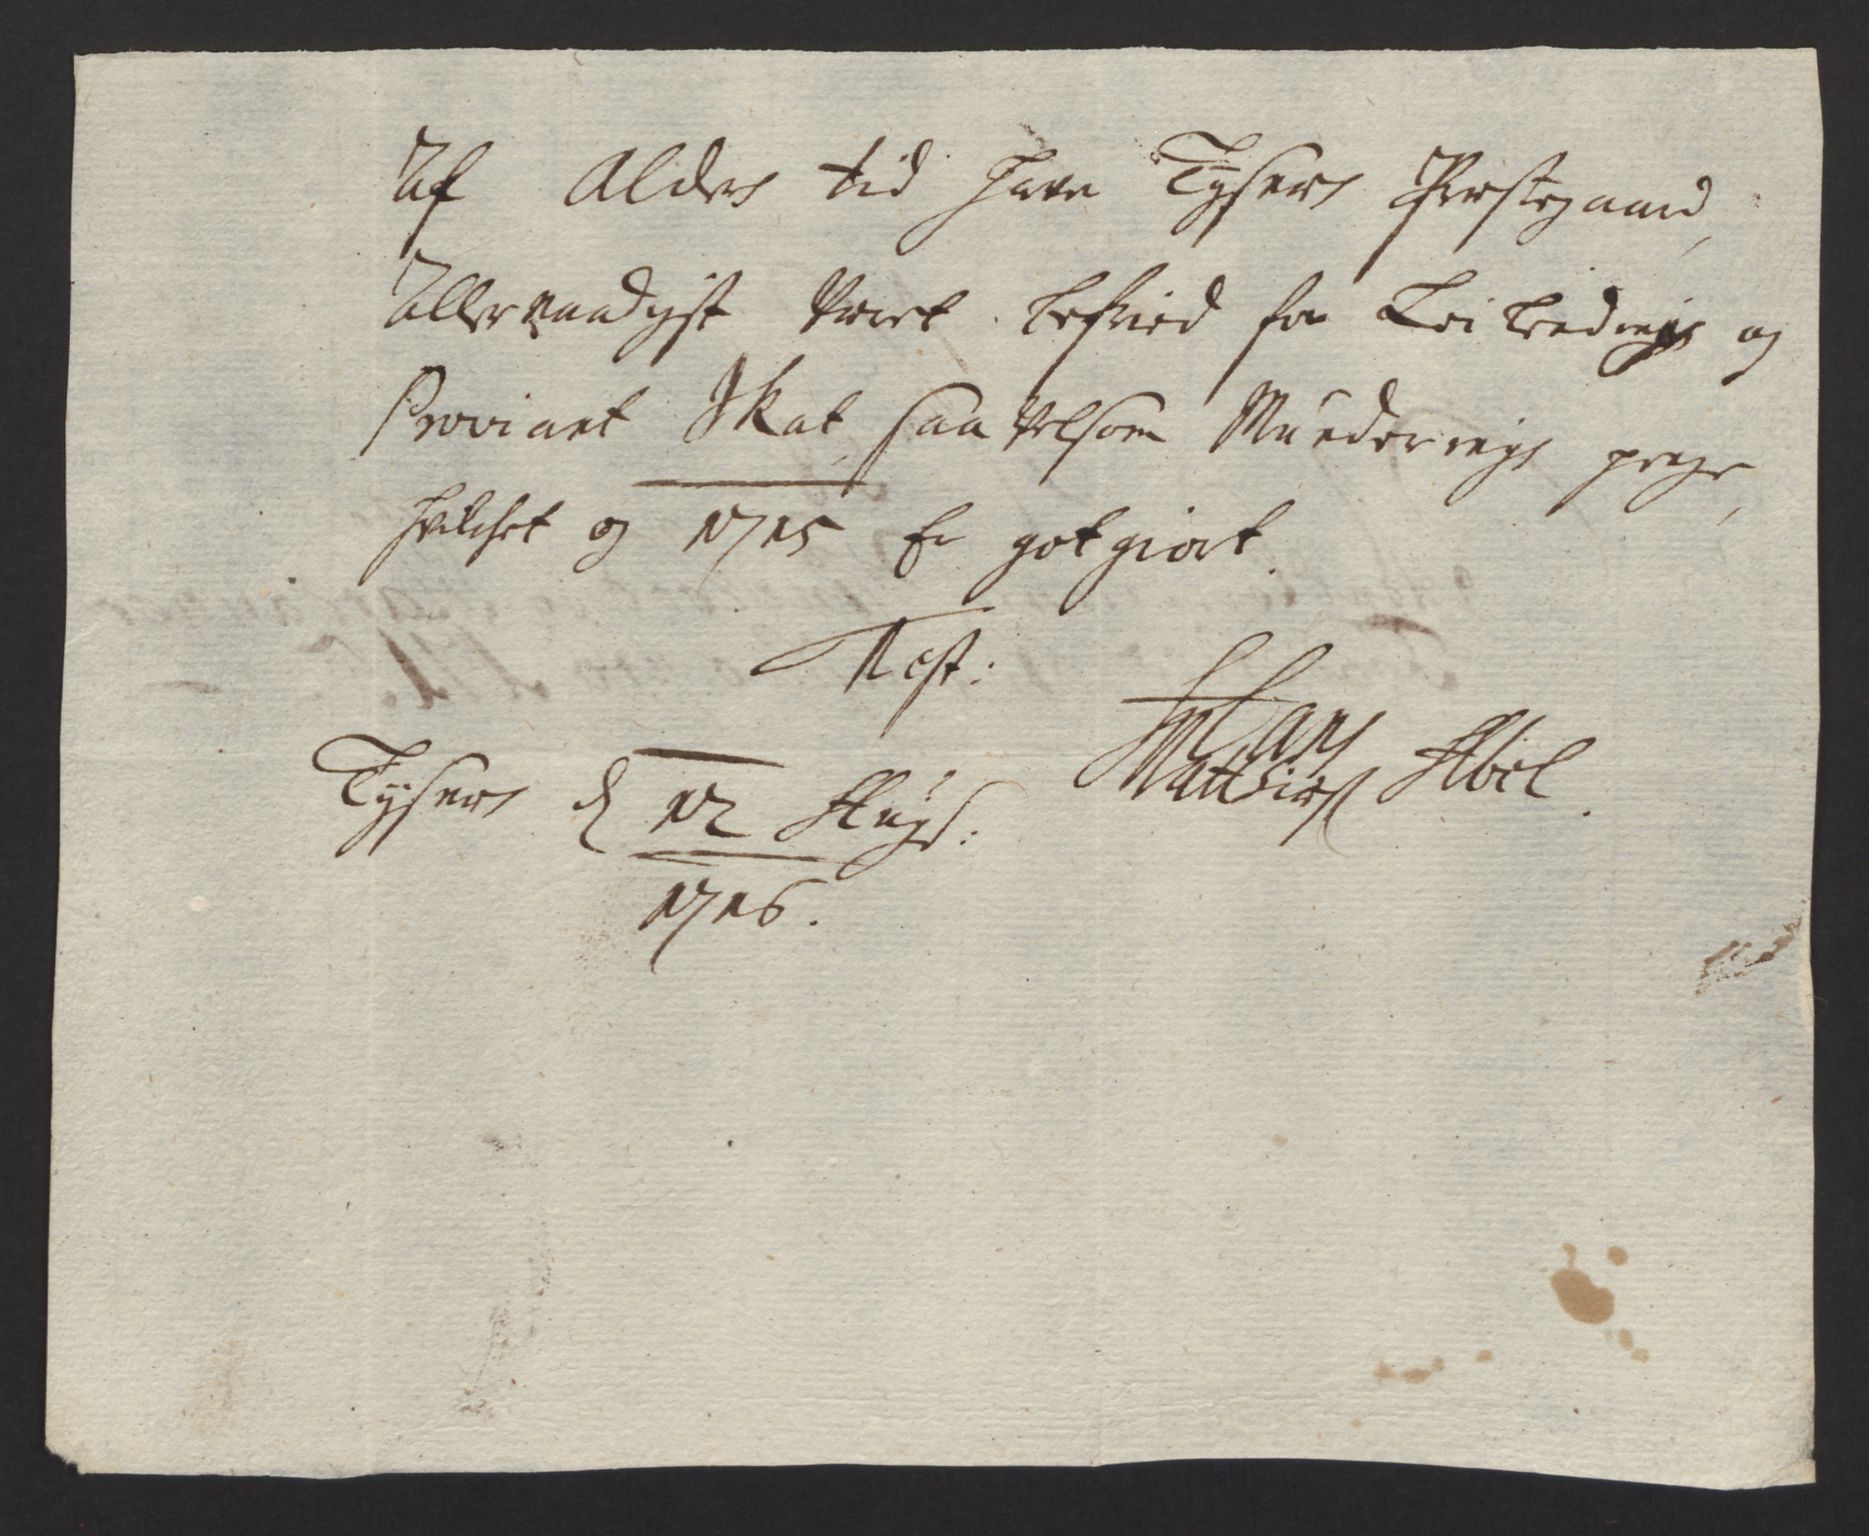 Af Alders tid have Tysers Præstegaard,
Allernaadigst været befried for Leilendings og
Proviant Skat, saa velsom Munderings penge,
hvilchet og 1715 Er got giort.
Test:
Hans
Tysers d 12 Augs: Mathiess Abel.
1716.